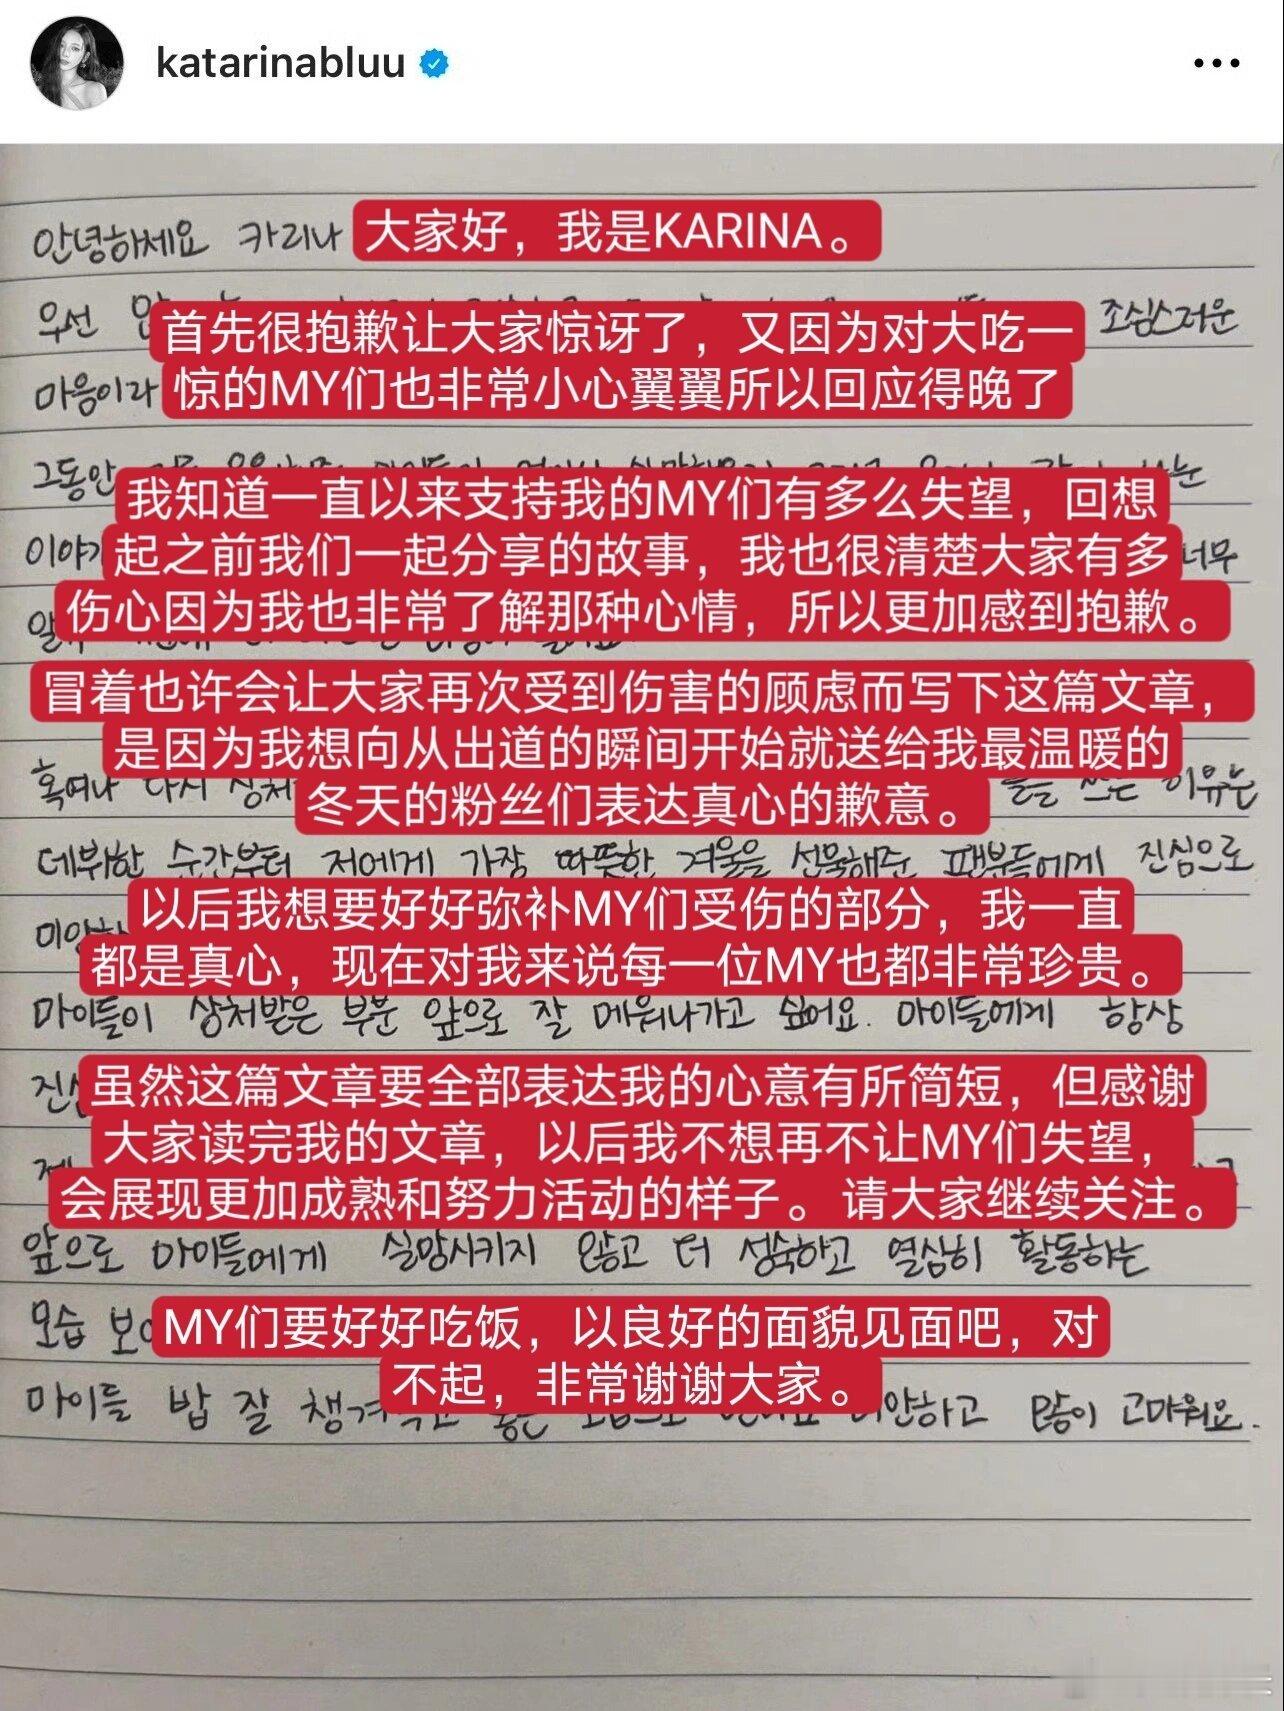 katarinabluu
안녕하세요 카리나 大家好，我是KARINA。
우선 조심스러운
首先很抱歉让大家惊讶了，又因为对大吃一
마음이라 惊的MY们也非常小心翼翼所以回应得晚了
그동안
我知道一直以来支持我的MY们有多么失望，回想
起之前我们一起分享的故事，我也很清楚大家有多 너무
伤心因为我也非常了解那种心情，所以更加感到抱歉。
冒着也许会让大家再次受到伤害的顾虑而写下这篇文章，
是因为我想向从出道的瞬间开始就送给我最温暖的
혹여나 다시 상처 쓰는 이유는
冬天的粉丝们表达真心的歉意。
데뷔한 순간부터 저에게 가장 따뜻한 겨울을 선물해준 팬분들에게 진심으로
以后我想要好好弥补MY们受伤的部分，我一直
都是真心，现在对我来说每一位MY也都非常珍贵。
마이들이 상처받은 부분 앞으로 잘 메워나가고 싶어요. 마이들에게 항상
虽然这篇文章要全部表达我的心意有所简短，但感谢
大家读完我的文章，以后我不想再不让MY们失望，
会展现更加成熟和努力活动的样子。请大家继续关注。
앞으로 마이들에게 실망시키지 않고 더 성숙하고 열심히 활동하는
모습 MY们要好好吃饭，以良好的面貌见面吧，对
不起，非常谢谢大家。
마이들 밥 잘 많이 고마워요.